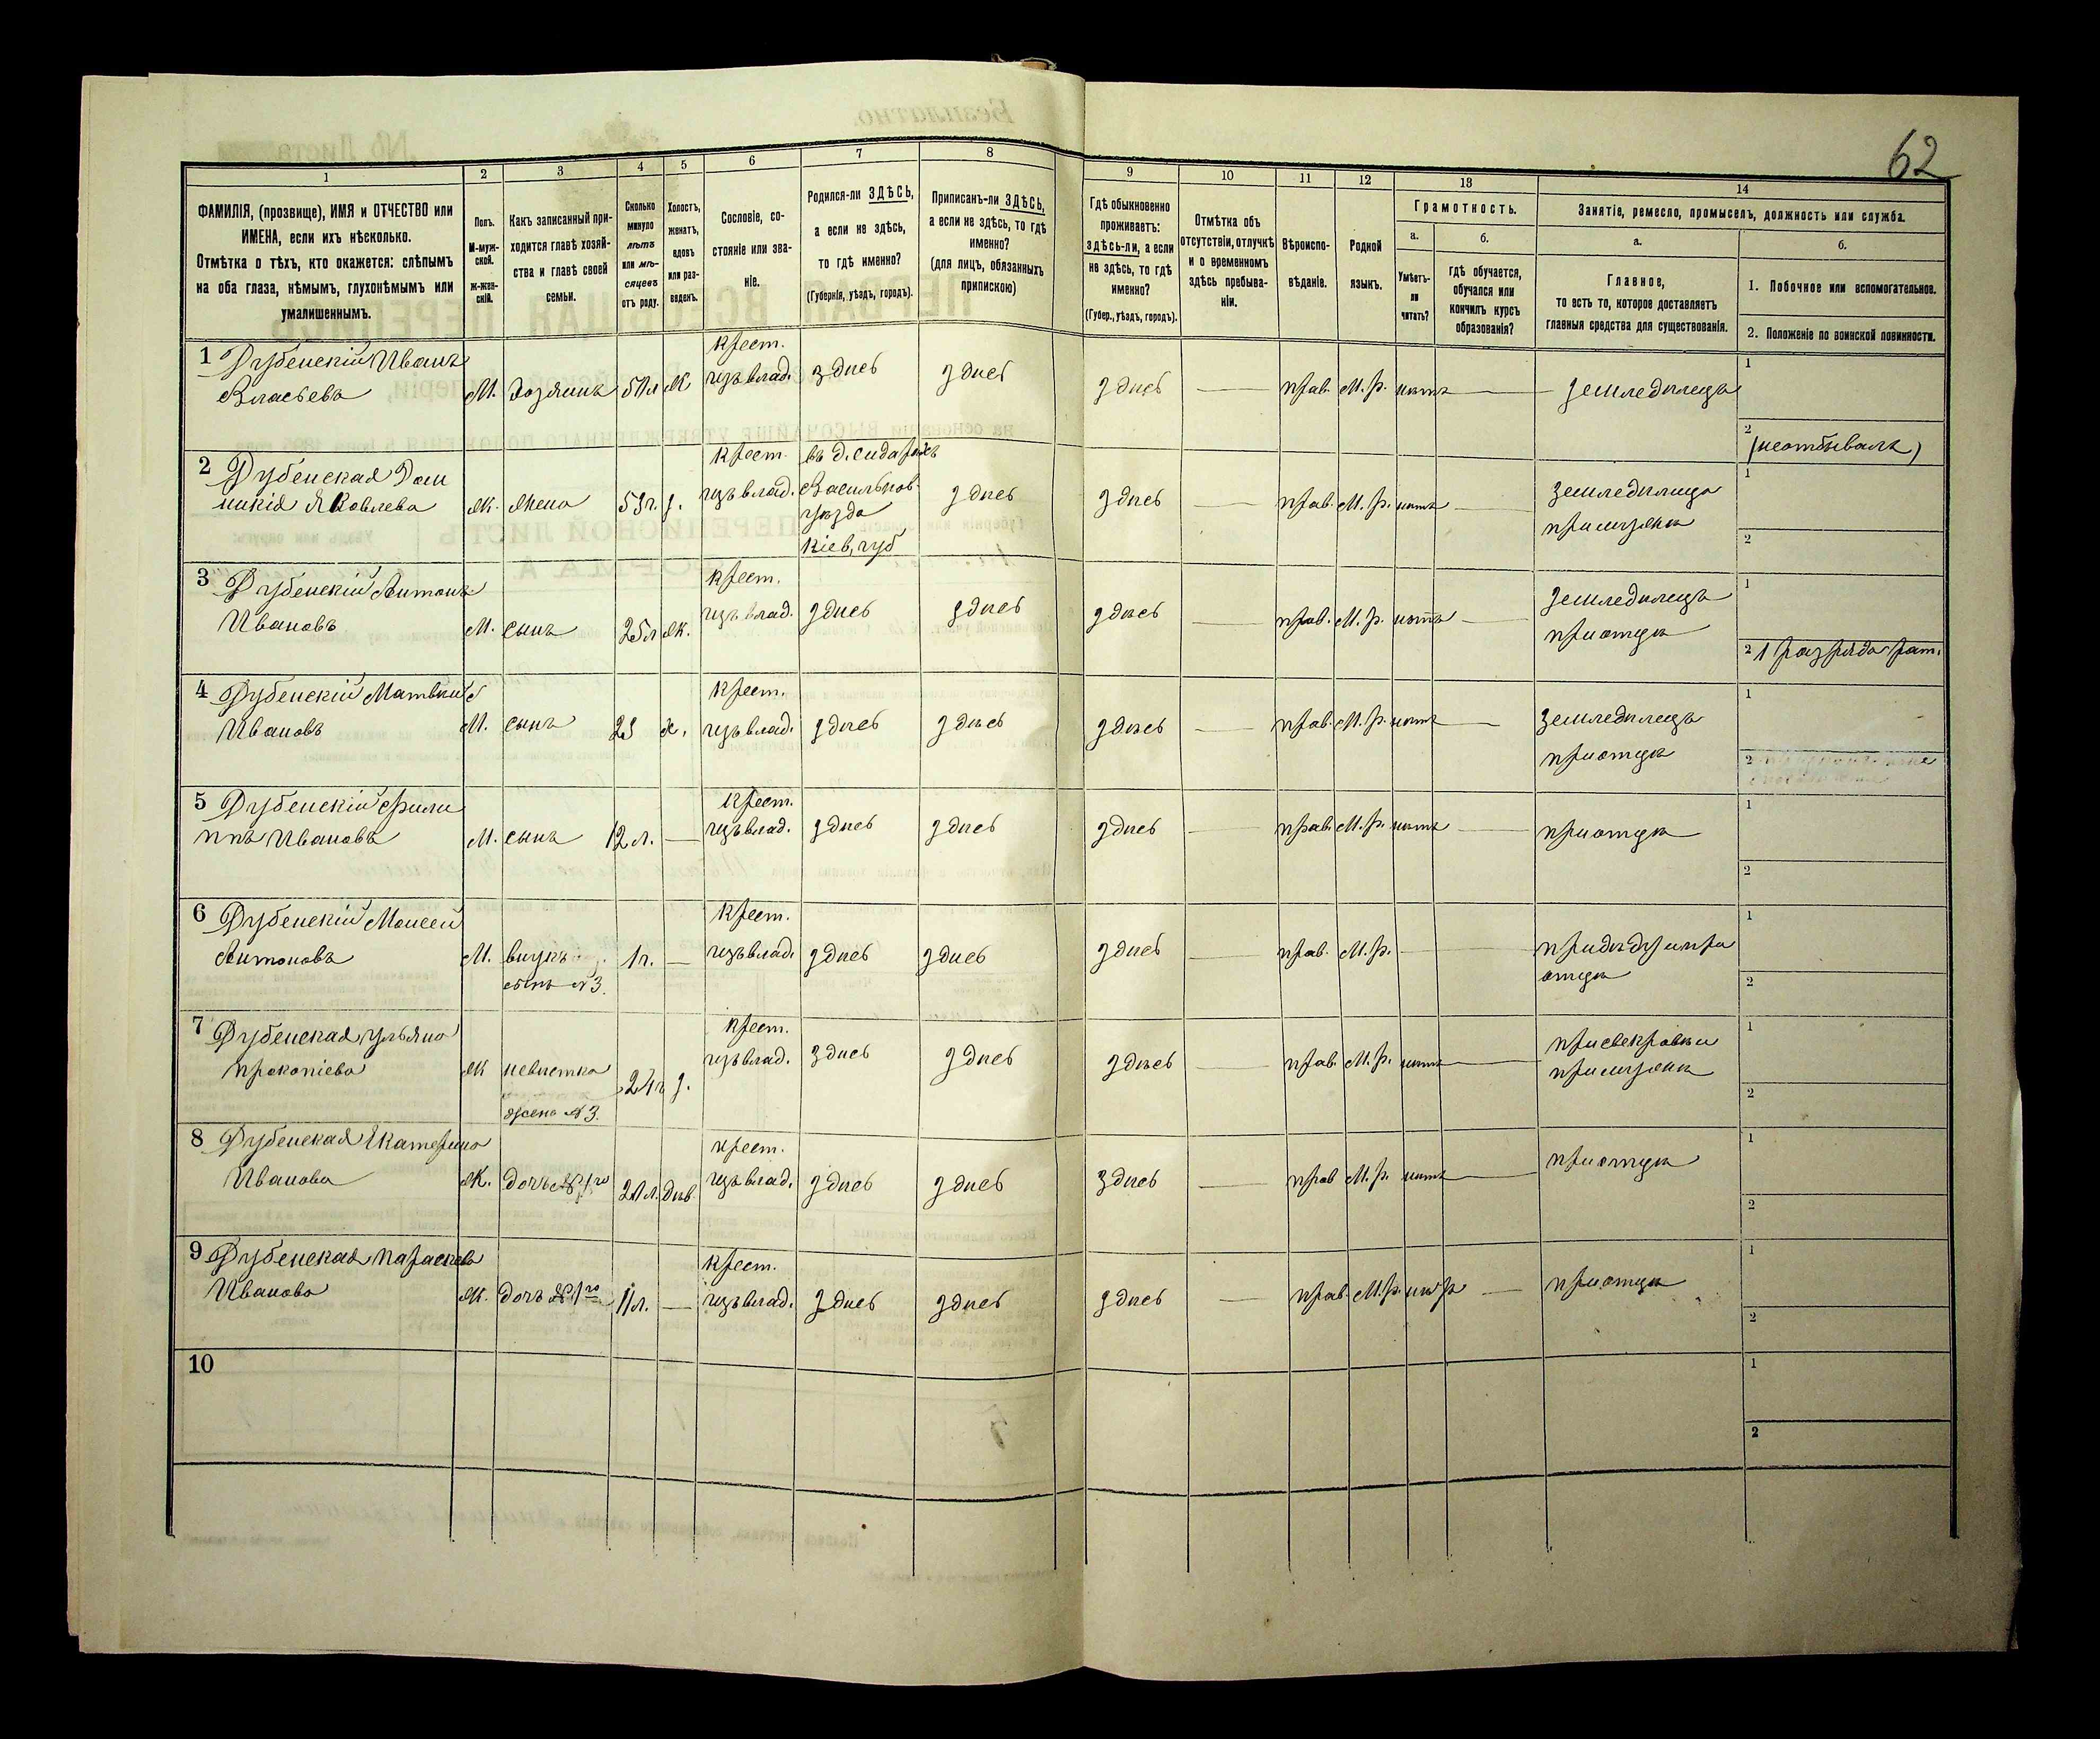 62
1
2
3
4
5
6
7
8
9
10
11
12
13
14
ФАМИЛІЯ, (прозвище), ИМЯ и ОТЧЕСТВО или
ИМЕНА, если ихъ нѣсколько.
Отмѣтка о тѣхъ, кто окажется: слѣпымъ
на оба глаза, нѣмымъ, глухонѣмымъ или
умалишеннымъ.
Полъ.
М-муж-
ской.
Ж-жен-
скій.
Какъ записанный при-
ходится главѣ хозяй-
ства и главѣ своей
семьи.
Сколько
минуло
лѣтъ
или мѣ-
сяцевъ
отъ роду.
Холостъ,
женатъ,
вдовъ
или раз-
веденъ.
Сословіе, со-
стояніе или зва-
ніе.
Родился-ли ЗДѢСЬ,
а если не здѣсь,
то гдѣ именно?
(Губернія, уѣздъ, городъ).
Приписанъ-ли ЗДѢСЬ,
а если не здѣсь, то гдѣ
именно?
(для лицъ, обязанныхъ
припискою)
Гдѣ обыкновенно
проживаетъ:
здѣсь-ли, а если
не здѣсь, то гдѣ
именно?
(Губер., уѣздъ, городъ).
Отмѣтка объ
отсутствіи, отлучкѣ
и о временномъ
здѣсь пребыва-
ніи.
Вѣроиспо-
вѣданіе.
Родной
языкъ.
Грамотность.
а.
Умѣетъ-
ли
читать?
б.
Гдѣ обучается,
обучался или
кончилъ курсъ
образованія?
Занятіе, ремесло, промыселъ, должность или служба.
а.
Главное,
то есть то, которое доставляетъ
главныя средства для существованія.
б.
1. Побочное или вспомогательное.
2. Положеніе по воинской повинности.
1 Дубенскій Иванъ
Власьевъ
М. хозяинъ Ж
крест.
изъ влад. здѣсь здѣсь здѣсь — прав. М. р. нѣтъ — земледѣлецъ
1
2 (неотбывалъ)
2 Дубенская Дом
никія Яковлева
Ж. жена 53г. з.
крест.
изъ влад.
въ д.
Васильков.
уѣзда
Кіев. губ
здѣсь здѣсь — прав. М. р. нѣтъ —
земледѣлица
при мужѣ
1
2
3 Дубенскій Антонъ
Ивановъ
М. сынъ 25л ж.
крест.
изъ влад. здѣсь здѣсь здѣсь — прав. М. р. нѣтъ —
земледѣлецъ
при отцѣ
1
2 1 разряда рат.
4 Дубенскій Матвѣй
Ивановъ
М. сынъ 23 х.
крест.
изъ влад. здѣсь здѣсь здѣсь — прав. М. р. нѣтъ —
земледѣлецъ
при отцѣ
1
2
5 Дубенскій Фили
ппъ Ивановъ
М. сынъ 12 л. —
крест.
изъ влад. здѣсь здѣсь здѣсь — прав. М. р. нѣтъ — при отцѣ
1
2
6 Дубенскій Моисей
Антоновъ
М. внукъ
сынъ №3.
1г. —
крест.
изъ влад. здѣсь здѣсь здѣсь — прав. М. р. —
при дѣду и при
отцѣ
1
2
7 Дубенская Ульяна
Прокопіева
Ж невѣстка
жена №3.
з.
крест.
изъ влад. здѣсь здѣсь здѣсь — прав. М. р. нѣтъ —
при свекровѣ и
при мужѣ
1
2
8 Дубенская Екатерина
Иванова
Ж. дочь №1го дѣв.
крест.
изъ влад. здѣсь здѣсь здѣсь — прав М. р. нѣтъ — при отцѣ
1
2
9 Дубенская Параскева
Иванова
Ж. дочь №1го 11л. —
крест.
изъ влад. здѣсь здѣсь здѣсь — прав. М. р. — при отцѣ
1
2
10
1
2